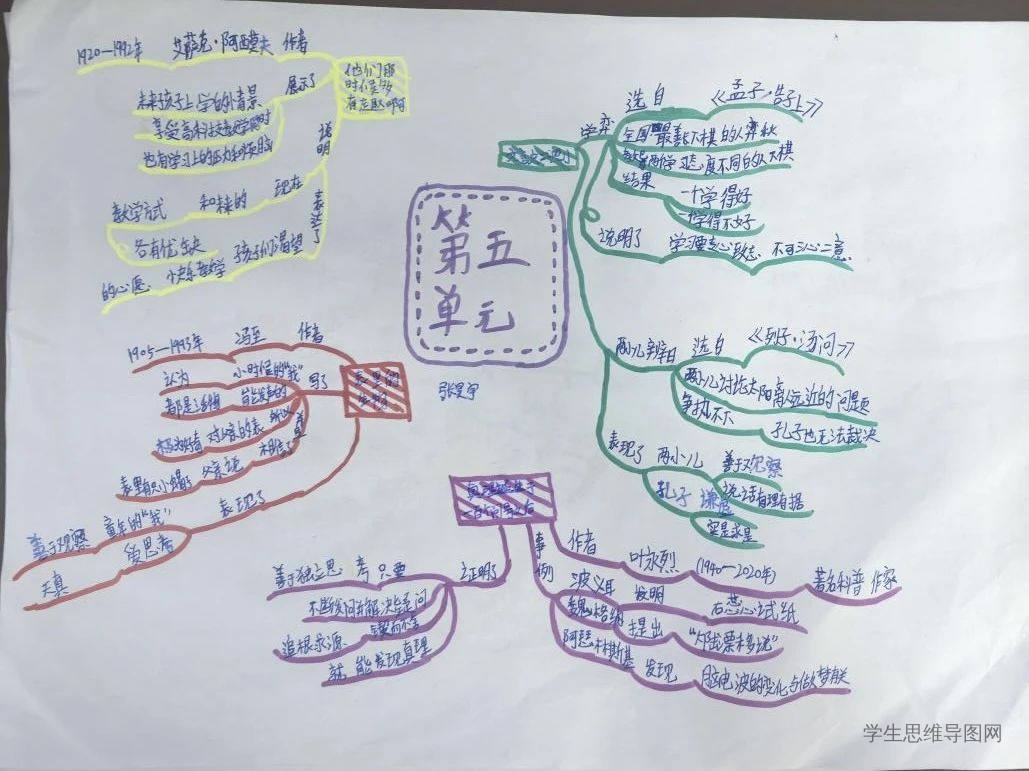 第五
单元
张星宇
1920—1992年 艾萨克·阿西莫夫 作者
他们那
时候多
有趣啊
展示了
未来孩子上学的情景
享受高科技教学同时
也有学习上的压力和烦恼
说明
现在
和未来的
教学方式
各有优缺
表达了
孩子们渴望
快乐教学
的心愿
1905—1993年 冯至 作者
表里的
生物
写了
小时候的“我”
认为
能发声的
都是活的
所以
对会响的表
极为好奇
相信了
父亲说
表里有只小蝎子
表现了
童年的“我”
善于观察
爱思考
天真
学弈
选自 《孟子·告子上》
全国最善下棋的人弈秋
教两个学习态度不同的人下棋
结果 一个学得好
一个学得不好
说明了 学习要专心致志 不可三心二意
两小儿辩日 选自 《列子·汤问》
两小儿讨论太阳离人远近的问题
争执不下 孔子也无法裁决
表现了 两小儿 善于观察
说话有理有据
孔子 谦虚
实事求是
真理诞生于
一百个问号之后
作者 叶永烈 (1940—2020年) 著名科普 作家
事例
波义耳 发明 石蕊试纸
魏格纳 提出 “大陆漂移说”
阿瑟林斯基 发现 脑电波的变化与做梦有关
证明了
善于独立思 考 只要
不断发问并解决疑问
锲而不舍
追根求源
就 能发现真理
学生思维导图网